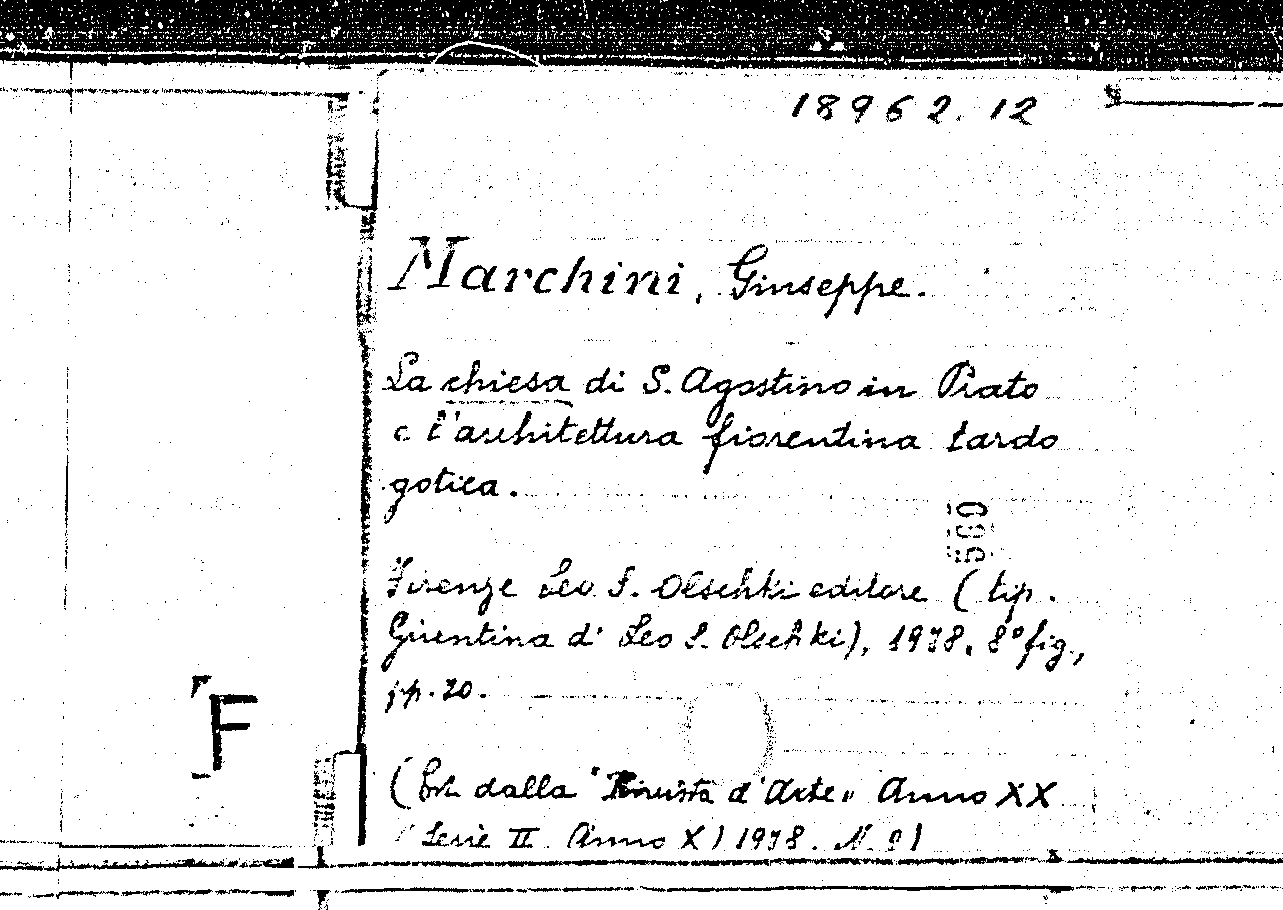 18962.12
Marchini, Giuseppe.
La chiesa di S. Agostino in Prato
e l'architettura fiorentina tardo
gotica.
569
Firenze Leo S. Olschki editore (tip.
Giuntina di Leo S. Olschki), 1938. 8° fig.,
pp. 20.
F
(Estr. dalla "Rivista d'Arte" Anno XX
(Serie II Anno X) 1938. N. 2)